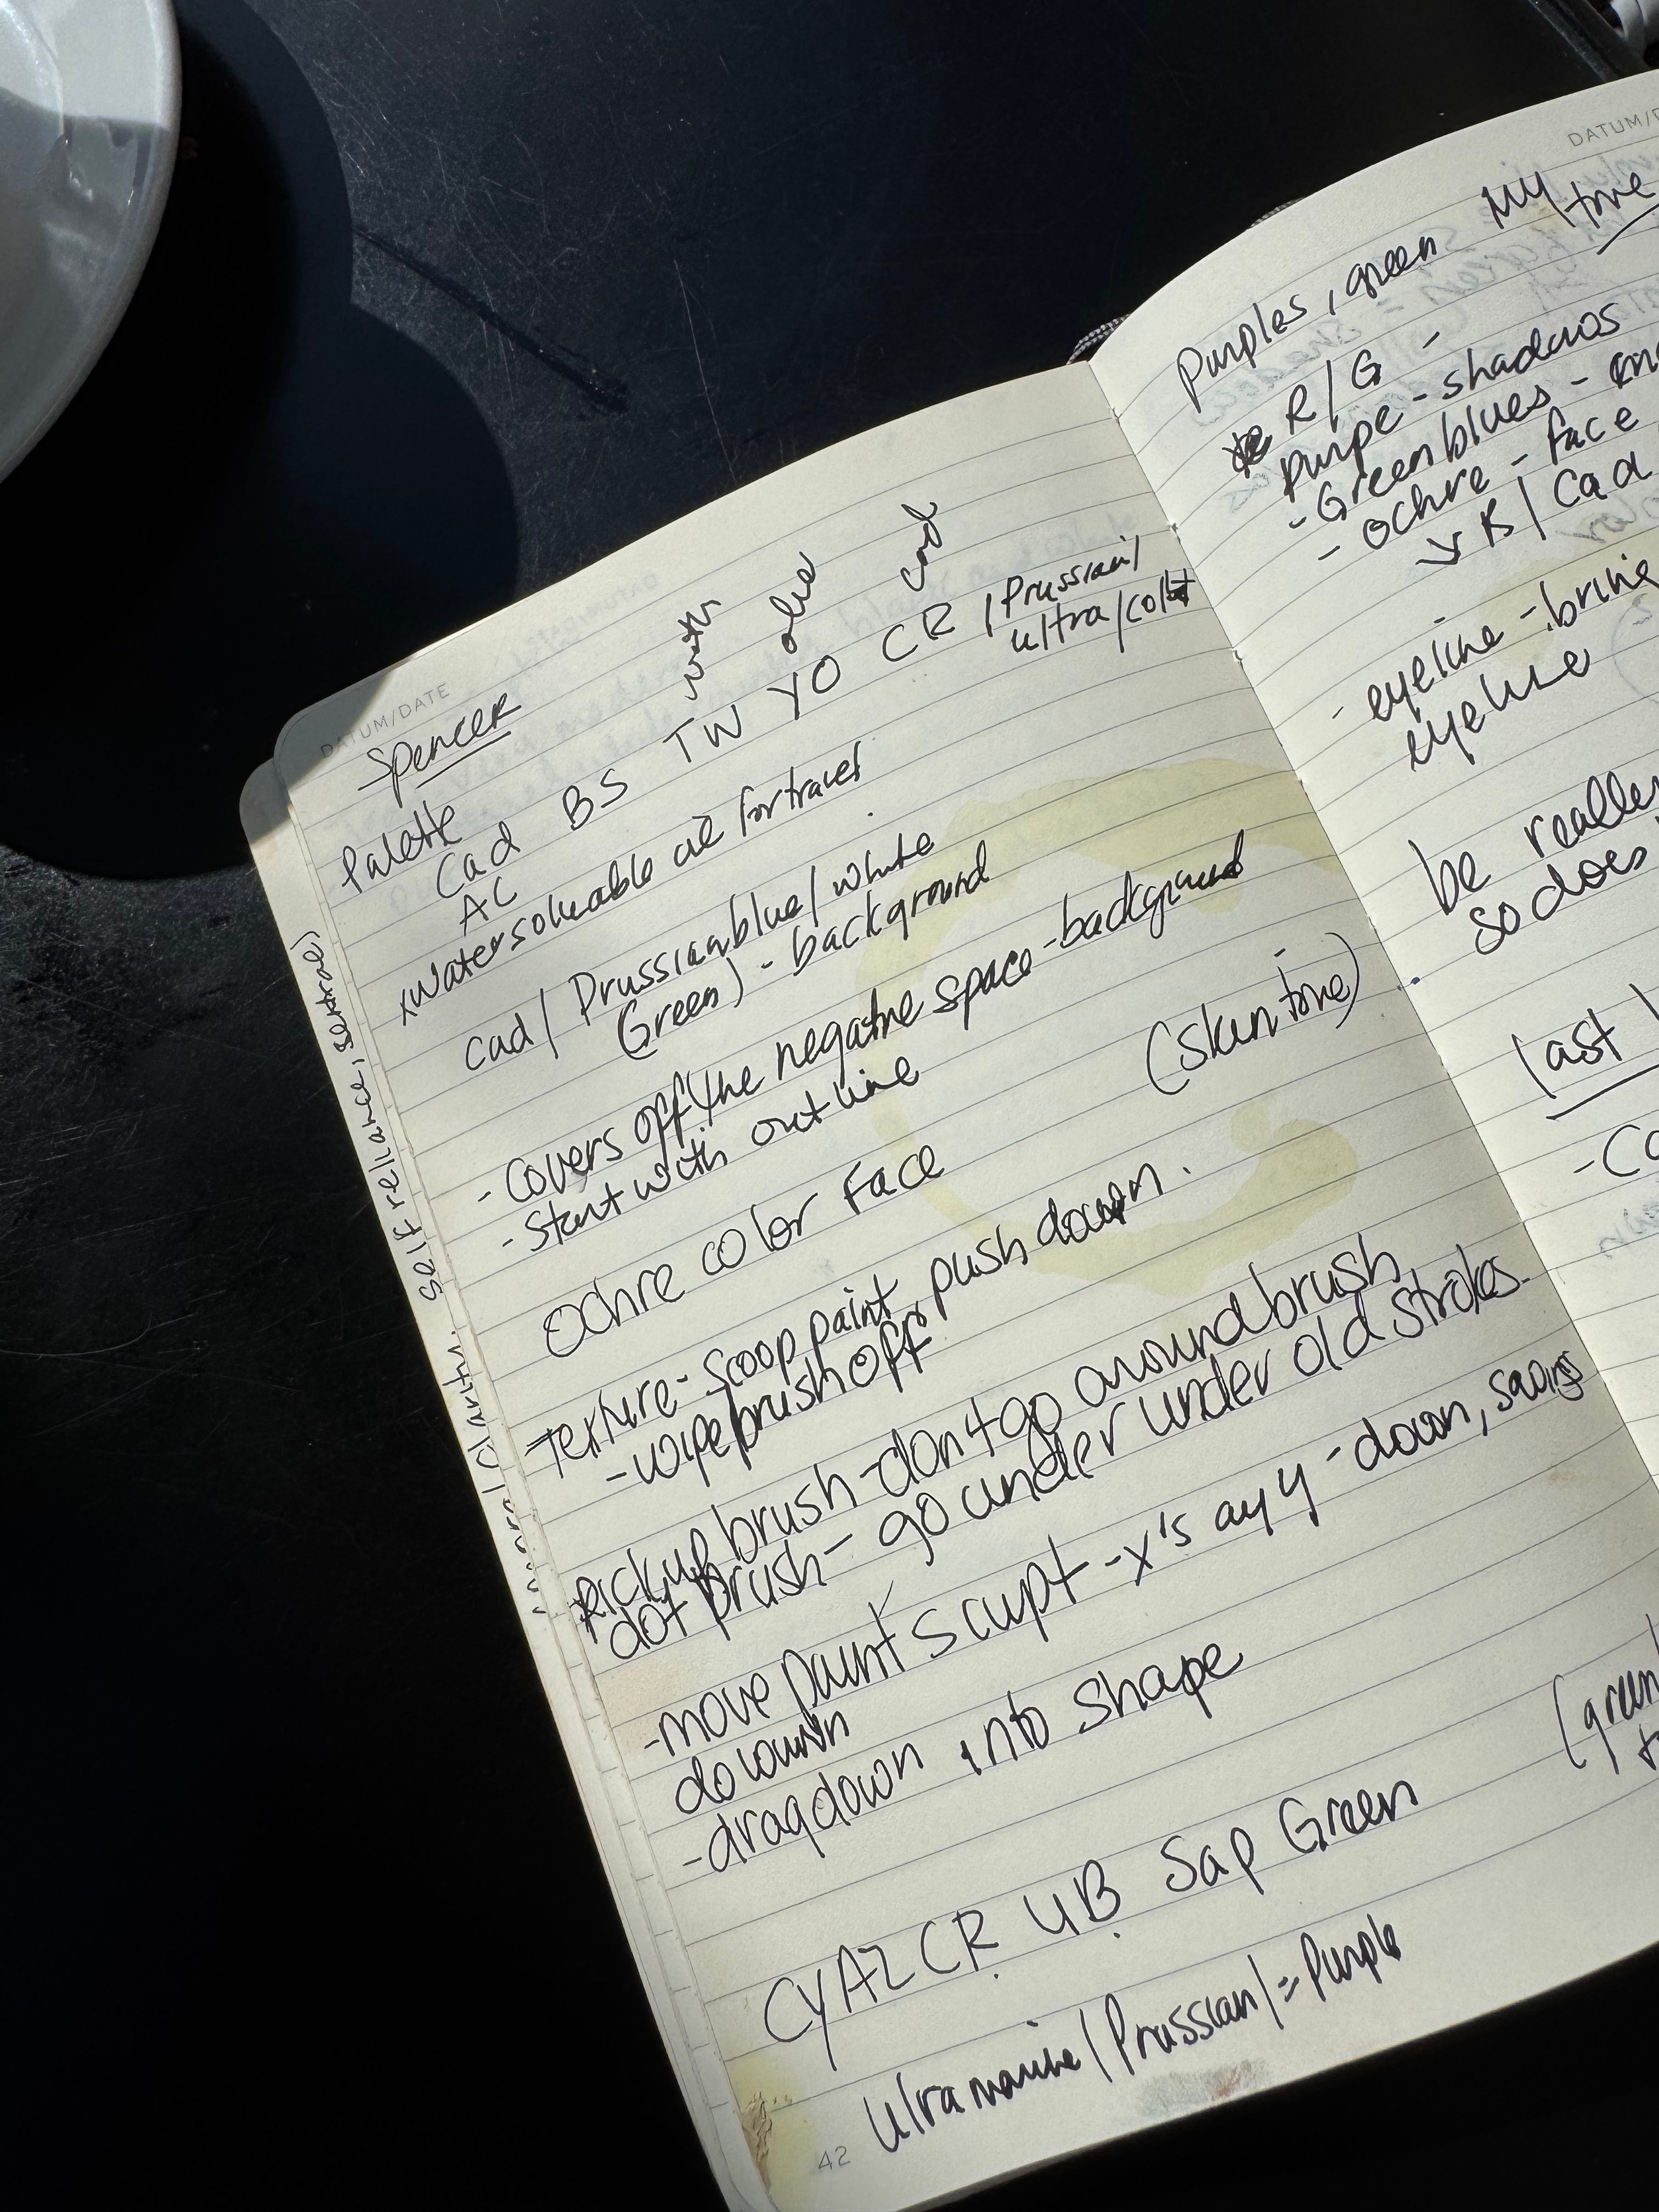 DATUM/DATE
Spencer
Palette
Cad BS TW YO CR / Prussian/
ultra/colt
AC
xwatersoluable oil for travel
cad / Prussian blue / white
(Green) - background
- Covers off the negative space - background
- Start with outline
(skin tone)
Ochre color Face
Texture - Scoop paint, push down.
- wipe brush off
pick up brush - don't go around brush
dot brush - go under under old strokes
- move paint scupt - x's any y - down,
do down
- drag down into shape
CYAZ CR UB Sap Green
Ulramarine / Prussian / = Purple
42
self reliance,
clarity.
DATUM/
My
tone
Purples, green
R/G -
purpe - shadows
- Green blues -
- ochre - face
R / Cad
- eyeline - bring
eyeline
be really
so does
last
- Co
(green